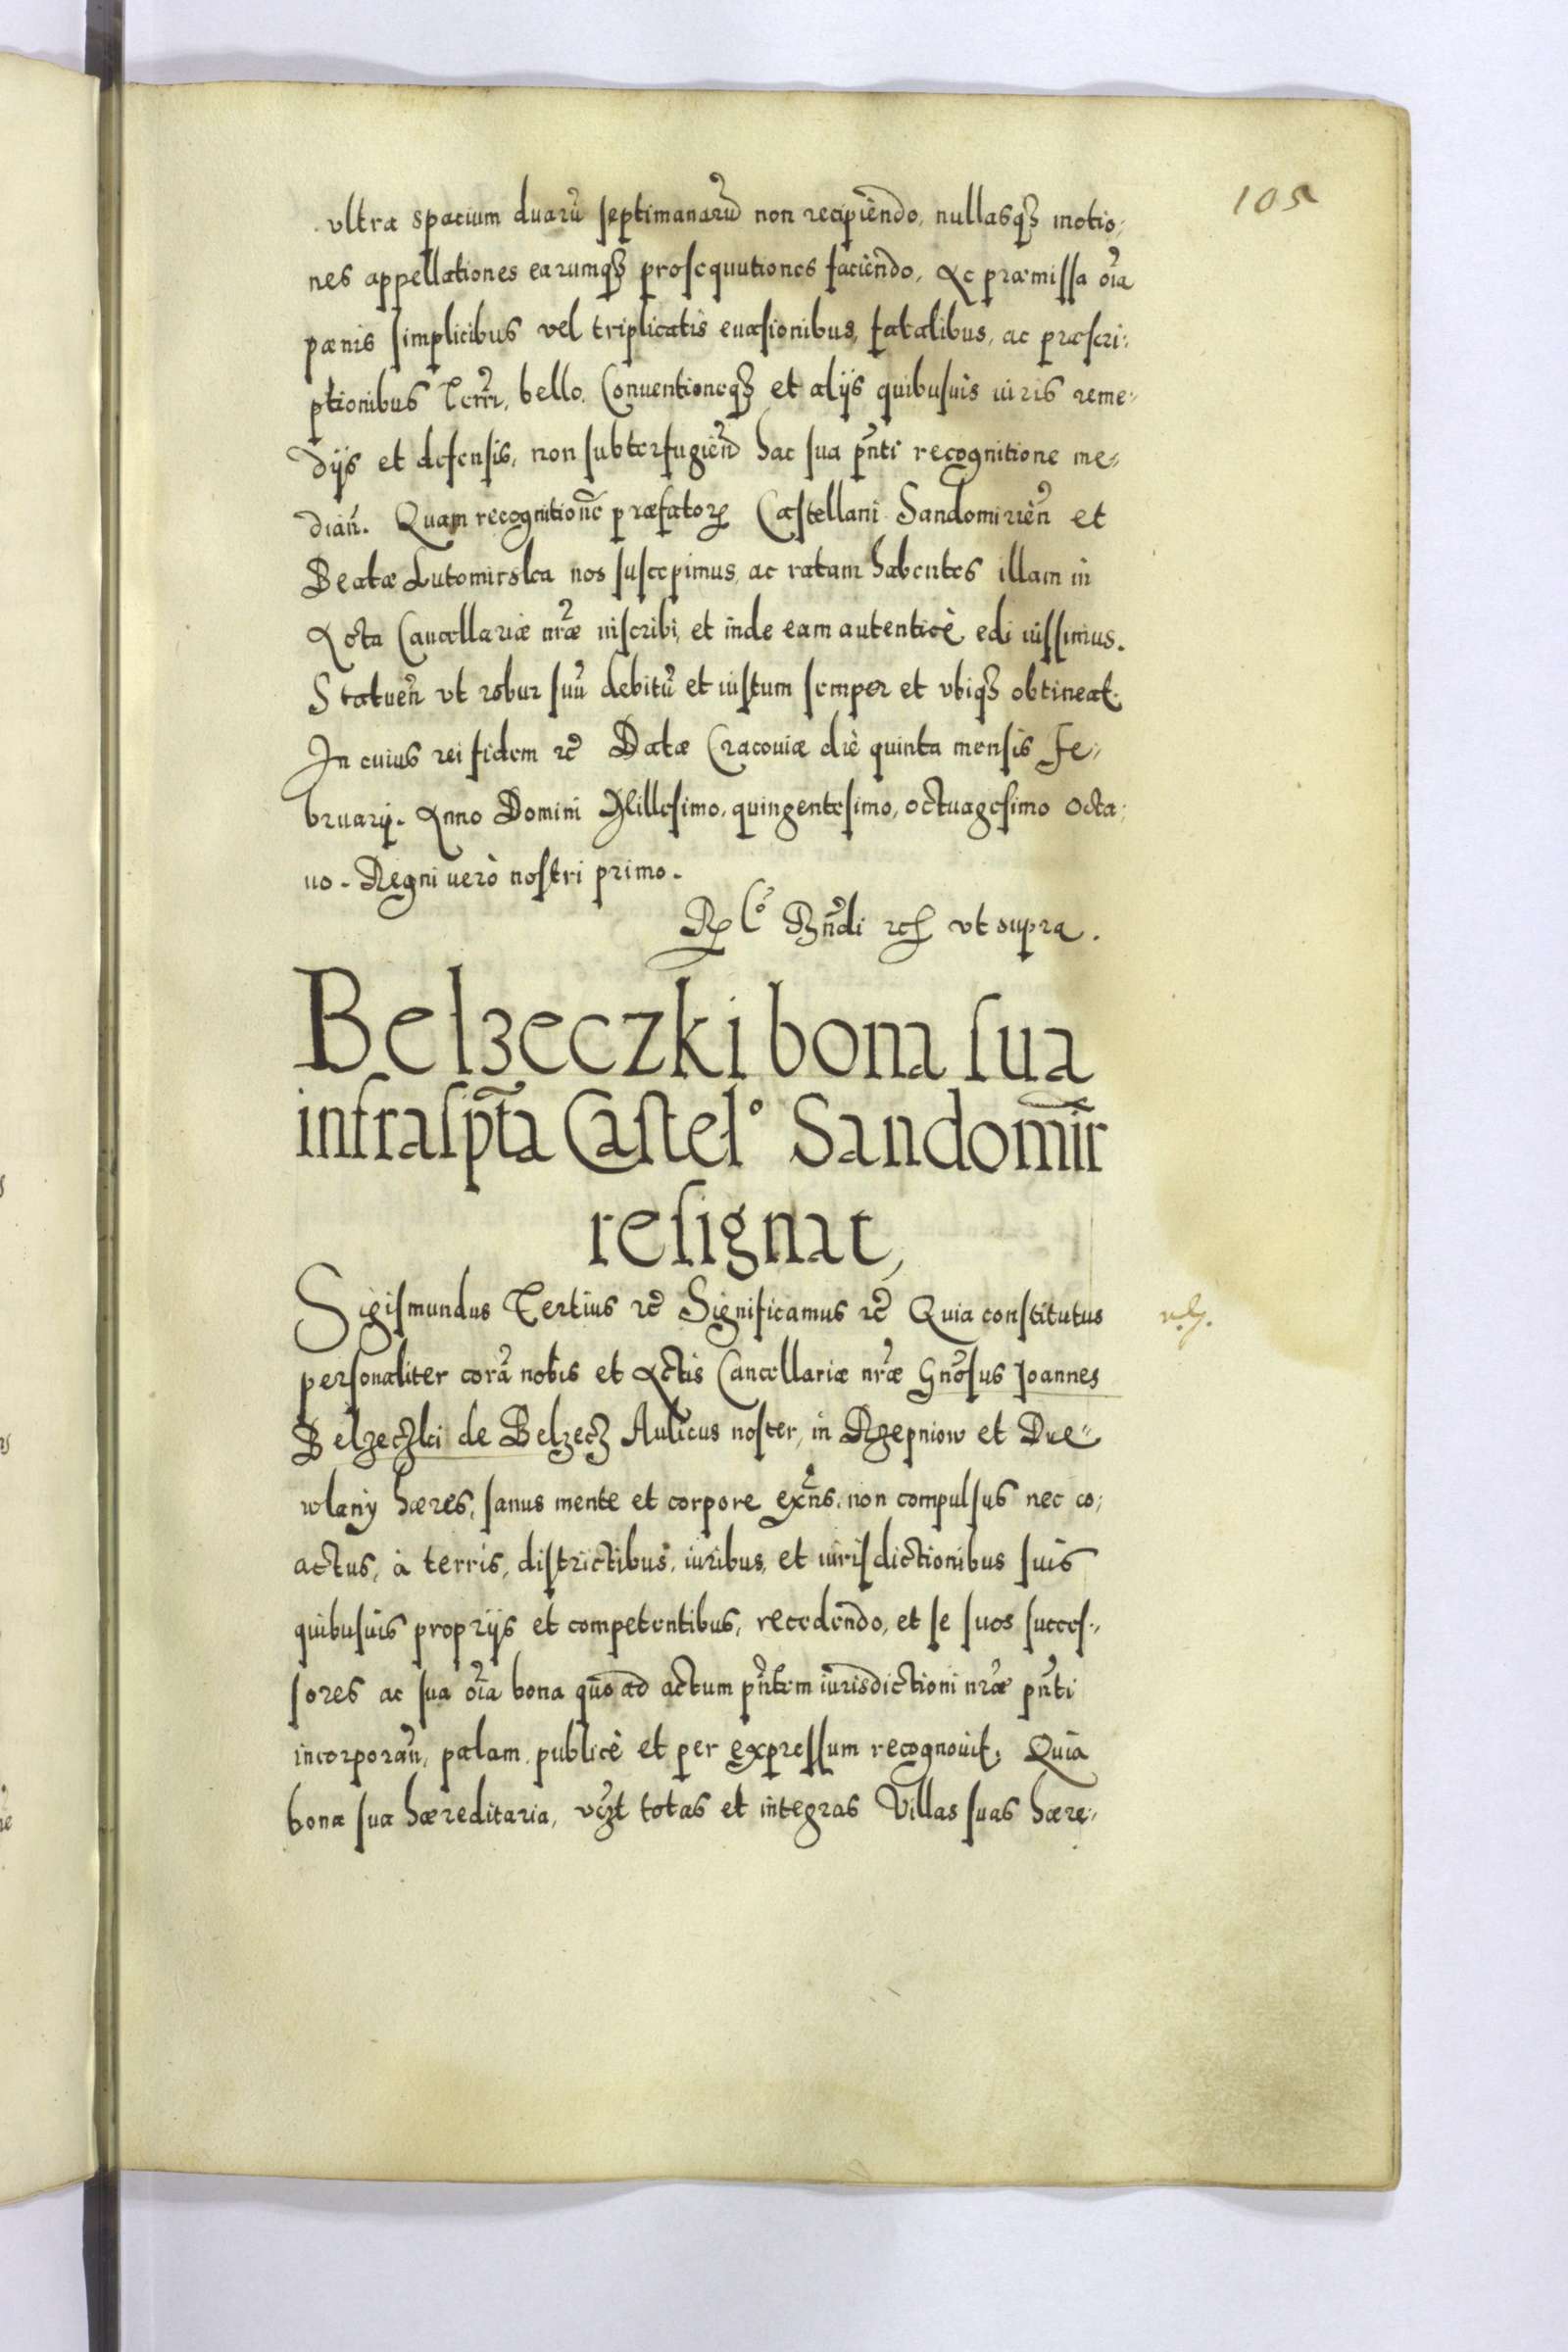 105
vltra spacium duarũ septimanarũ non recipiendo, nullasqȝ motio-
nes appellationes earumqȝ prosequutiones faciendo. Ac præmissa oĩa
pænis simplicibus vel triplicatis euasionibus, fatalibus, ac præscri-
ptionibus Terrᷓ, bello. Conuentioneqȝ et alijs quibusuis iuris reme-
dijs et defensis, non subterfugieñd hac sua pñti recognitione me-
diañ. Quam recognitionẽ præfatorꝝ Castellani Sandomirieñ et
Beatæ Lutomirska nos suscepimus, ac ratam habentes illam in
Acta Cancellariæ nr̃æ inscribi, et inde eam autenticè edi iussimus.
Statueñ vt robur suũ debitũ et iustum semper et vbiqȝ obtineat.
In cuius rei fidem ꝛc̃ Datæ Cracouiæ die quinta mensis Fe-
bruarij. Anno Domini Millesimo, quingentesimo, octuagesimo octa-
uo. Regni uerò nostri primo.
Rlᵒ Rñdi ꝛc vt supra.
Belzeczki bona sua
infrasp̃ta Castelᵒ Sandom̃ir
resignat,
Sigismundus Tertius ꝛc̃ Significamus ꝛc̃ Quia constitutus
personaliter corã nobis et Actis Cancellariæ nr̃æ Gnõsus Joannes
Belzeczki de Belzecz Aulicus noster, in Rzepniow et Dre-
wlany hæres, sanus mente et corpore exñs. non compulsus nec co-
actus, à terris, districtibus, iuribus, et iurisdictionibus suis
quibusuis proprijs et competentibus, recedendo, et se suos succes-
sores ac sua oĩa bona quo ad actum pñtem iurisdictioni nr̃æ pñti
incorporañ, palam publicè et per expressum recognouit. Quia
bona sua hæreditaria, vcz̃t totas et integras Villas suas hære-